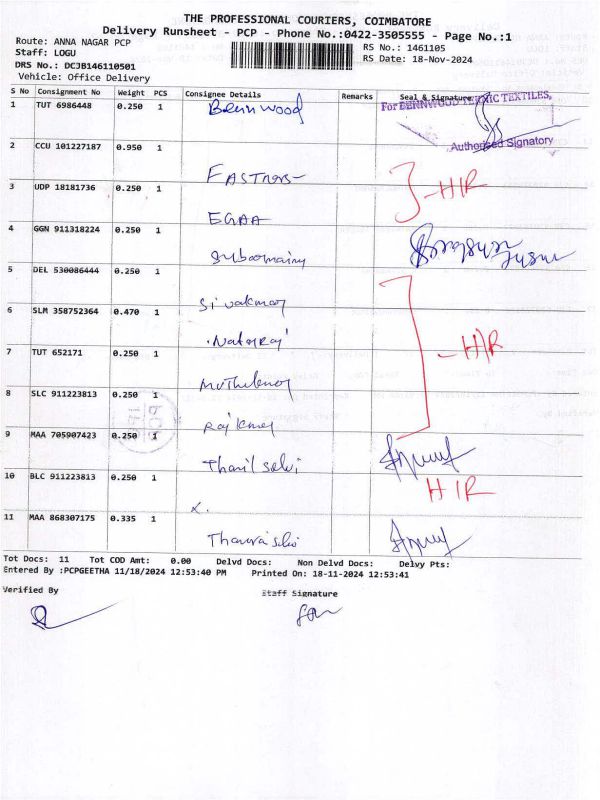 THE PROFESSIONAL COURIERS, COIMBATORE
Delivery Runsheet - PCP - Phone No.:0422-3505555 - Page No.:1
Route: ANNA NAGAR PCP
RS No.: 1461105
Staff: LOGU
RS Date: 18-Nov-2024
DRS No.: DCJB146110501
Vehicle: Office Delivery
S No Consignment No Weight PCS Consignee Details Remarks Seal & Signature
For BENNWOOD TEXTILES,
1 TUT 6986448 0.250 1 Bennwood
Authorised Signatory
2 CCU 101227187 0.950 1 FASTNERS
3 UDP 18181736 0.250 1 EGAA
H/R
4 GGN 911318224 0.250 1
5 DEL 530086444 0.250 1 Sivakmar
6 SLM 358752364 0.470 1 Nataraj
H/R
7 TUT 652171 0.250 1
8 SLC 911223813 0.250 1 Rajkmar
PCP
9 MAA 705907423 0.250 1 Thamil selvi
10 BLC 911223813 0.250 1 H/R
11 MAA 868307175 0.335 1
Tot Docs: 11 Tot COD Amt: 0.00 Delvd Docs: Non Delvd Docs: Delvy Pts:
Entered By :PCPGEETHA 11/18/2024 12:53:40 PM Printed On: 18-11-2024 12:53:41
Verified By Staff Signature